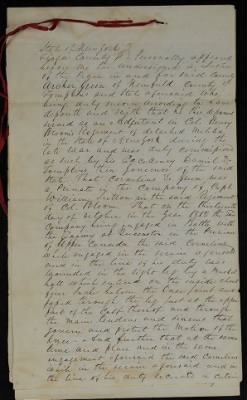 State of New York
Tioga County ss Personally appeared
before me the undersigned a Justice
of the Peace in and for said County
Archer Green of Newfield County of
Tompkins and State aforesaid who
being duly sworn according to law
deposeth and saith that he the deponent
served as an Adjutant in Col. Henry
Bloom's Regiment of detached Militia
in the State of New York during the
late War and was duly Commissioned
as such by his Excellency Daniel D.
Tompkins then Governor of the said
State That Cornelius was
a Private in the Company of Capt
William in the said Regiment
of Col. Bloom That on the thirteenth
day of October in the Year 1812 the
Company being engaged in battle with
the Enemy at Queenston in the Province
of Upper Canada the said Cornelius
while engaged in the service aforesaid
and in the line of his duty was
wounded in the right leg by a Musket
ball which entered on the inside about
four inches below the knee joint and
passed through the leg just at the upper
part of the Calf thereof and through
the main tendons and sinews that
govern and protect the Motion of the
knee - And further that at the same
time and place and in the same
engagement aforesaid the said Cornelius
while in the service aforesaid and in
the line of his duty received a